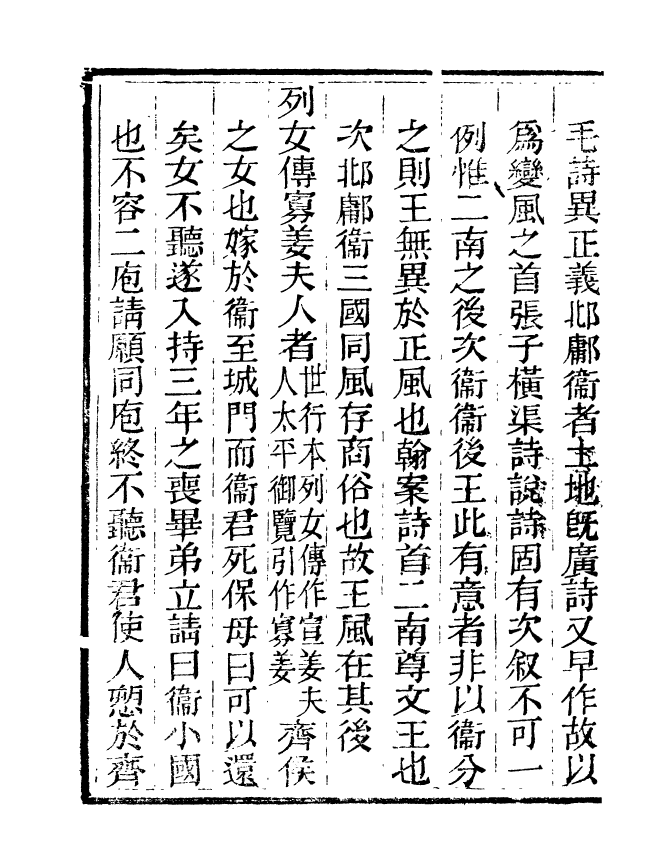 毛詩異正義邶鄘衞者土地旣廣詩又早作故以
爲變風之首張子橫渠詩說詩固有次叙不可一
例惟二南之後次衞衞後王此有意者非以衞分
之則王無異於正風也翰案詩首二南尊文王也
次邶鄘衞三國同風存商俗也故王風在其後
列女傳寡姜夫人者世行本列女傳作宣姜夫人太平御覽引作寡姜齊侯
之女也嫁於衞至城門而衞君死保母曰可以還
矣女不聽遂入持三年之喪畢弟立請曰衞小國
也不容二庖請願同庖終不聽衞君使人愬於齊